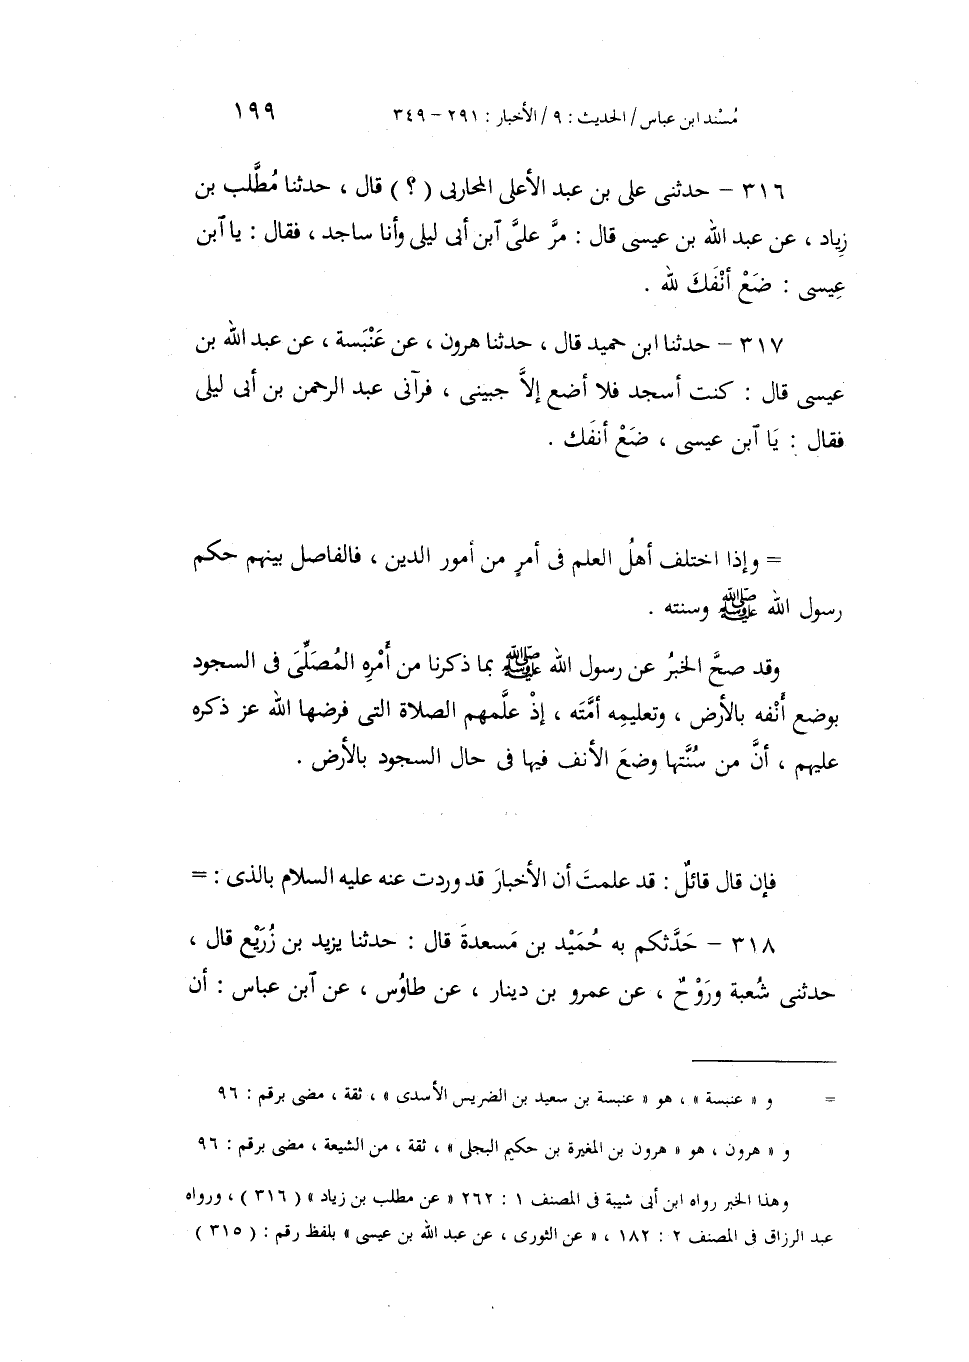 مُسْند ابن عباس / الحديث : ٩ / الأخبار : ٢٩١ – ٣٤٩ ١٩٩
٣١٦ – حدثنى على بن عبد الأعلى المحاربى ( ؟ ) قال ، حدثنا مُطَّلب بن
زِياد ، عن عبد الله بن عيسى قال : مرَّ علىَّ ٱبن أبى ليلى وأنا ساجد ، فقال : يا ٱبن
عِيسى : ضَعْ أنْفَكَ لله .
٣١٧ – حدثنا ابن حميد قال ، حدثنا هرون ، عن عَنْبَسة ، عن عبد الله بن
عيسى قال : كنت أسجد فلا أضع إلاَّ جبينى ، فرآنى عبد الرحمن بن أبى ليلى
فقال : يَا ٱبن عيسى ، ضَعْ أنفَك .
= وإذا اختلف أهلُ العلم فى أمرٍ من أمور الدين ، فالفاصل بينهم حكم
رسول الله ﷺ وسنته .
وقد صحَّ الخبرُ عن رسول الله ﷺ بما ذكرنا من أَمْرِه المُصَلِّىَ فى السجود
بوضع أَنْفه بالأرض ، وتعليمِه أمَّتَه ، إذْ علَّمهم الصلاة التى فرضها الله عز ذكره
عليهم ، أنَّ من سُنَّتها وضعَ الأنف فيها فى حال السجود بالأرض .
فإن قال قائلٌ : قد علمتَ أن الأخبارَ قد وردت عنه عليه السلام بالذى : =
٣١٨ – حَدَّثكم به حُمَيْد بن مَسعدةَ قال : حدثنا يزيد بن زُرَيْع قال ،
حدثنى شُعبة ورَوْحٌ ، عن عمرو بن دينار ، عن طاوُس ، عن ٱبن عباس : أن
= و « عنبسة » ، هو « عنبسة بن سعيد بن الضريس الأسدى » ، ثقة ، مضى برقم : ٩٦
و « هرون ، هو « هرون بن المغيرة بن حكيم البجلى » ، ثقة ، من الشيعة ، مضى برقم : ٩٦
وهذا الخبر رواه ابن أبى شيبة فى المصنف ١ : ٢٦٢ « عن مطلب بن زياد » ( ٣١٦ ) ، ورواه
عبد الرزاق فى المصنف ٢ : ١٨٢ ، « عن الثورى ، عن عبد الله بن عيسى » بلفظ رقم : ( ٣١٥ )